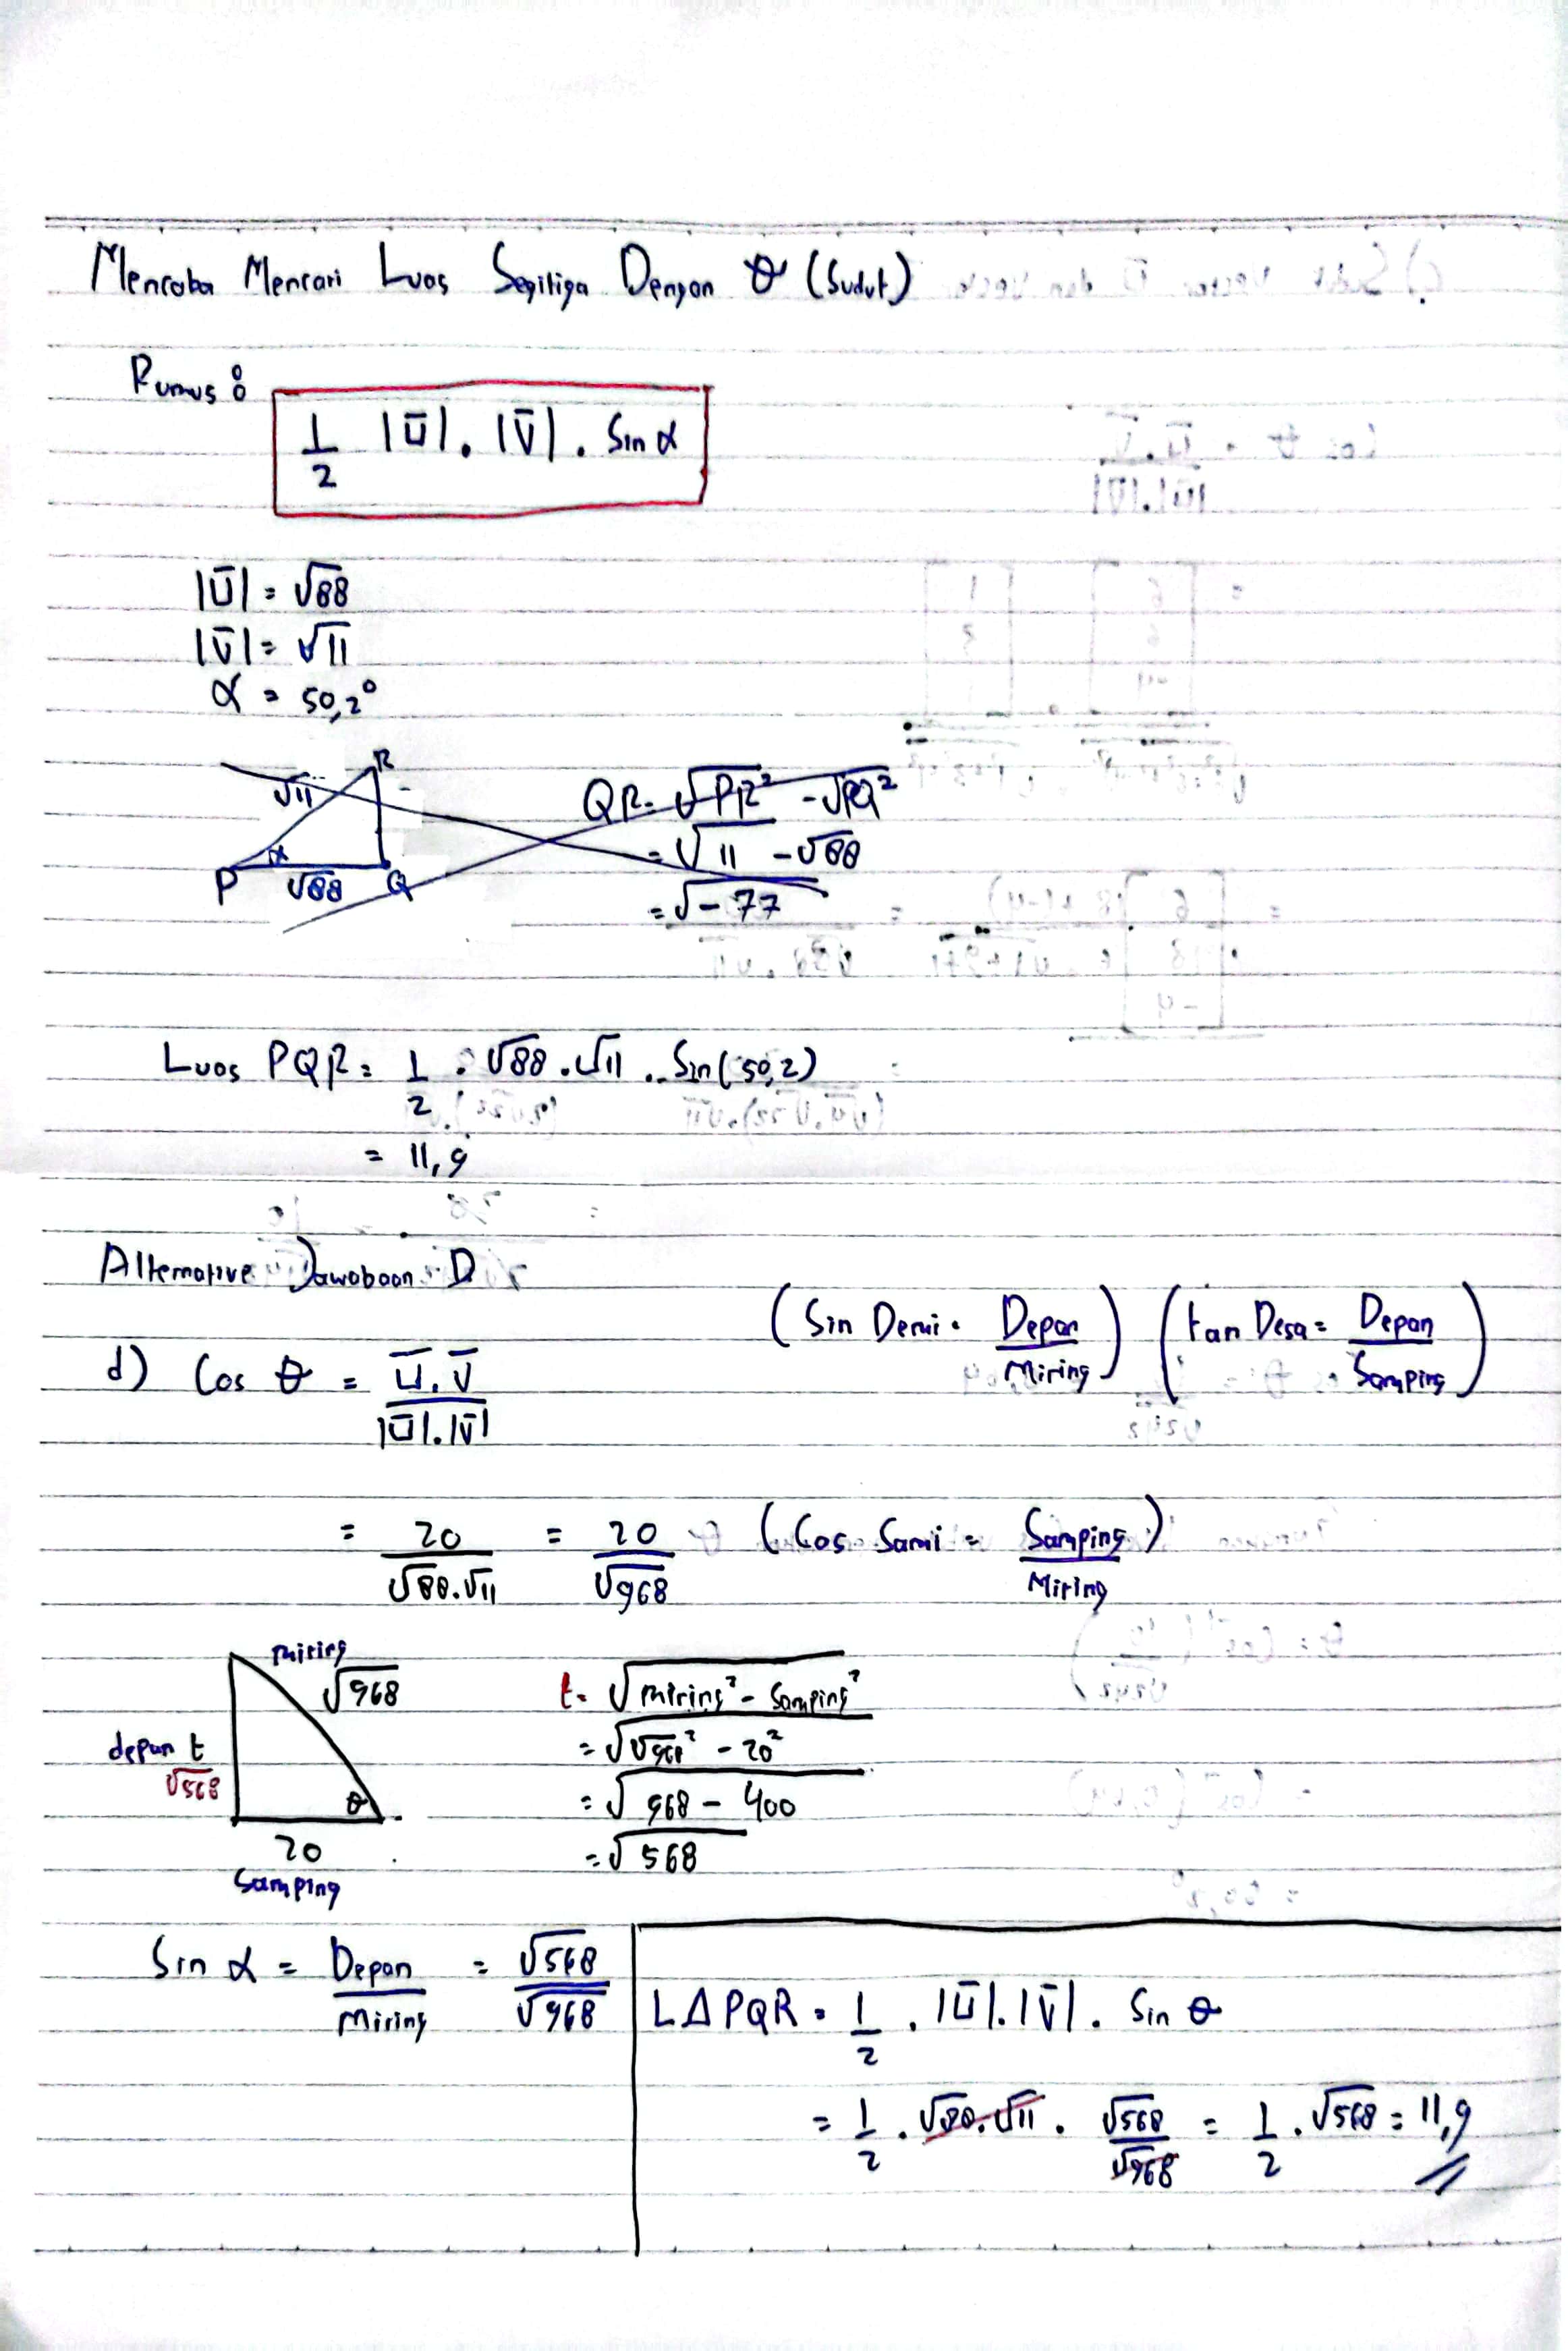 Mencoba Mencari Luas Segitiga Dengan θ (Sudut)
Rumus :
1/2 |ū|. |v̄|. Sin α
|ū| = √88
|v̄| = √11
α = 50,2°
R
√11
α
P √88 Q
QR = √PR² - √PQ²
= √11 - √88
= √-77
Luas PQR = 1/2 . √88 . √11 . Sin (50,2)
= 11,9
Alternative Jawabaan D
(Sin Demi = Depan/Miring) (tan Desa = Depan/Samping)
d) Cos θ = ū.v̄/|ū|.|v̄|
= 20/√88.√11 = 20/√968 (Cos Sami = Samping/Miring)
miring
√968
depan t
√568
θ
20
Samping
t = √miring² - Samping²
= √√968² - 20²
= √968 - 400
= √568
Sin α = Depan/Miring = √568/√968
L∆PQR = 1/2 . |ū|.|v̄|. Sin θ
= 1/2 . √88.√11 . √568/√968 = 1/2 . √568 = 11,9